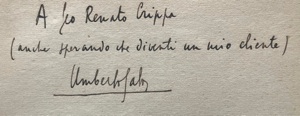 A Leo Renato Crippa
(anche sperando che diventi un mio cliente)
Umberto Saba